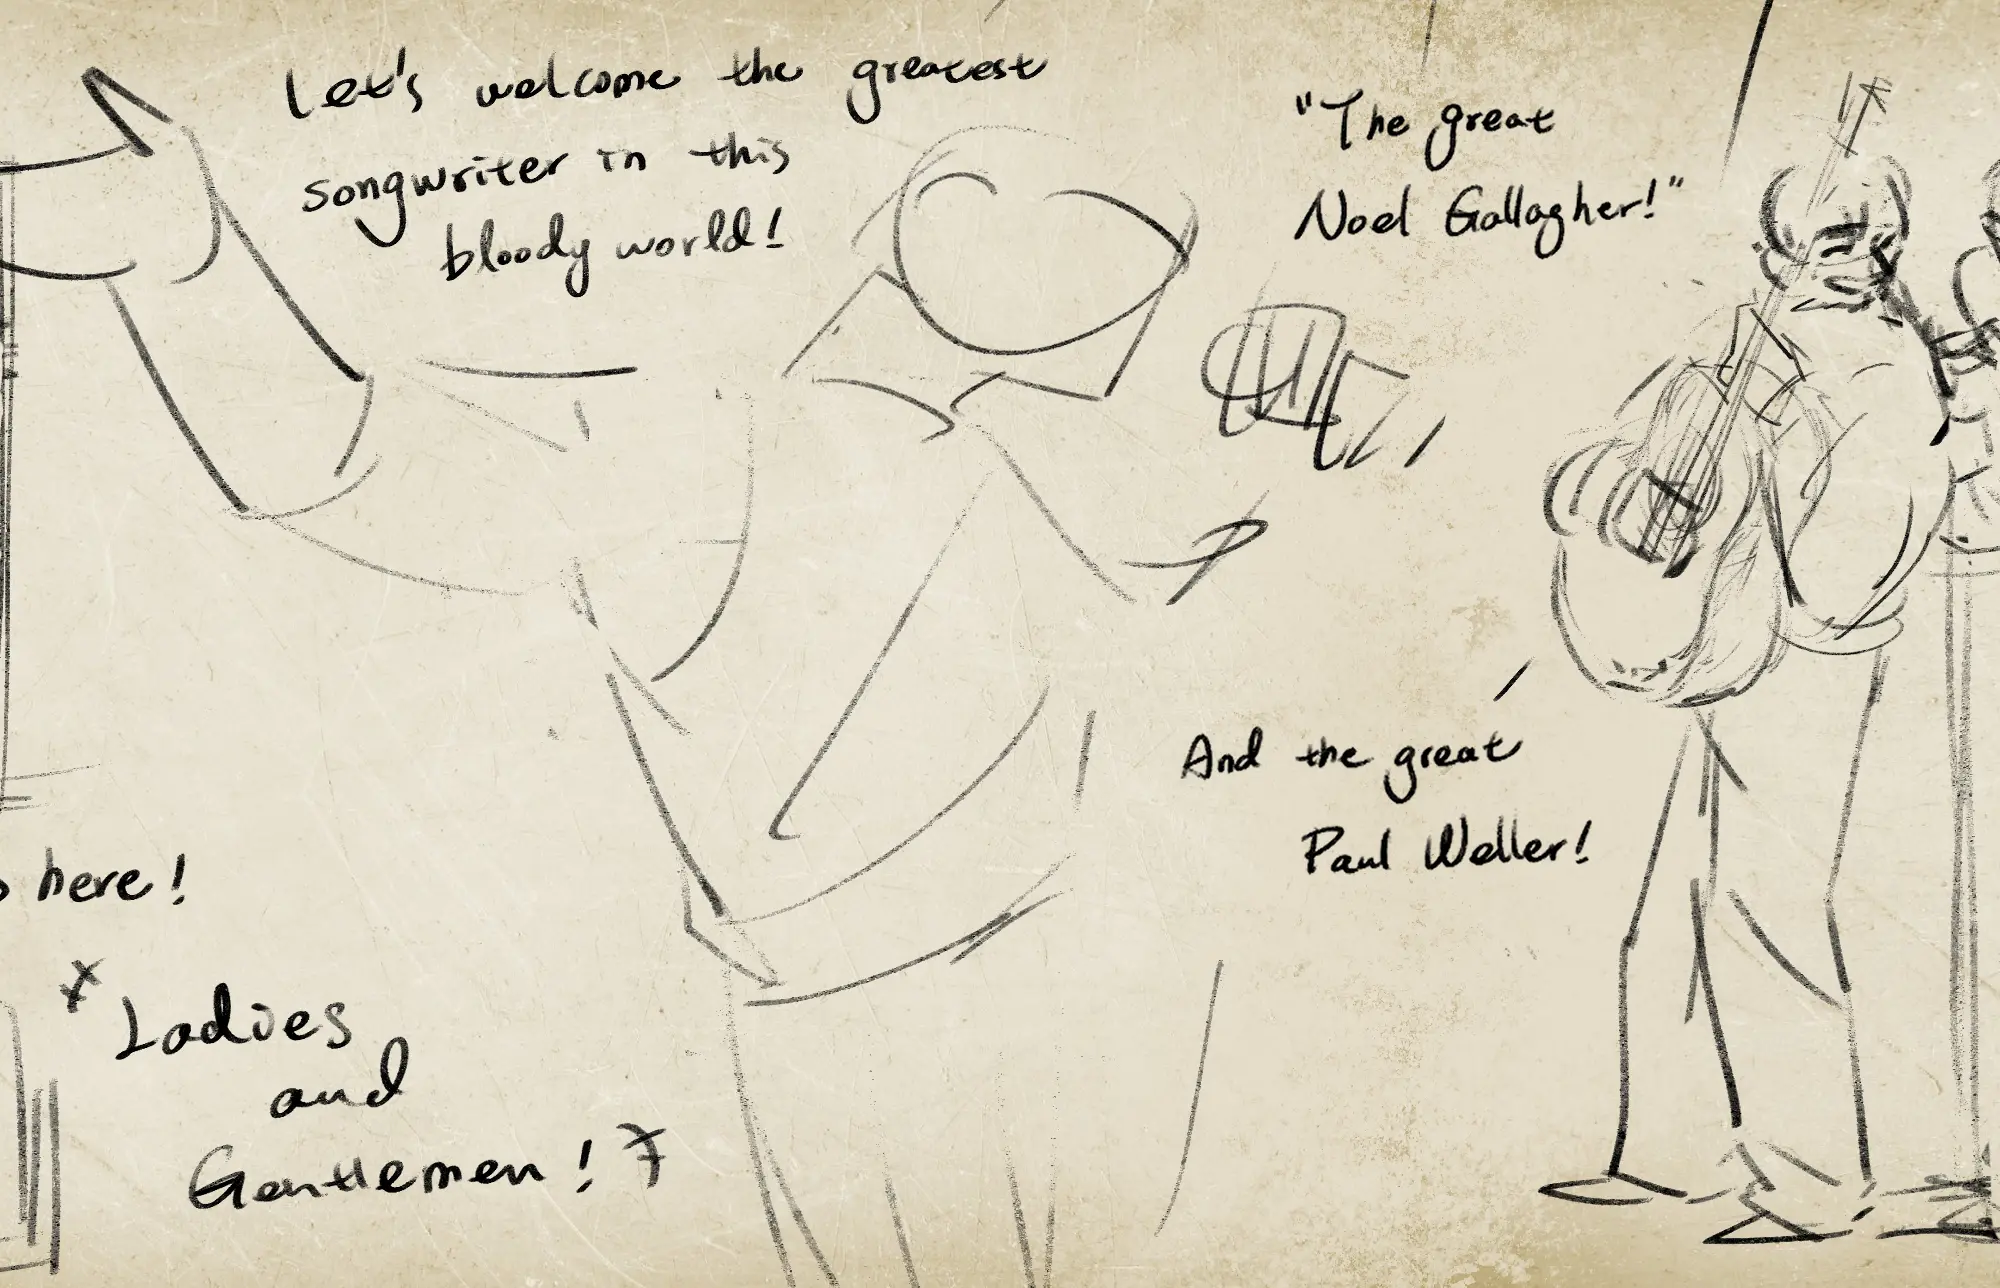 Let's welcome the greatest
songwriter in this
bloody world!
"The great
Noel Gallagher!"
And the great
Paul Weller!
here!
Ladies
and
Gentlemen!